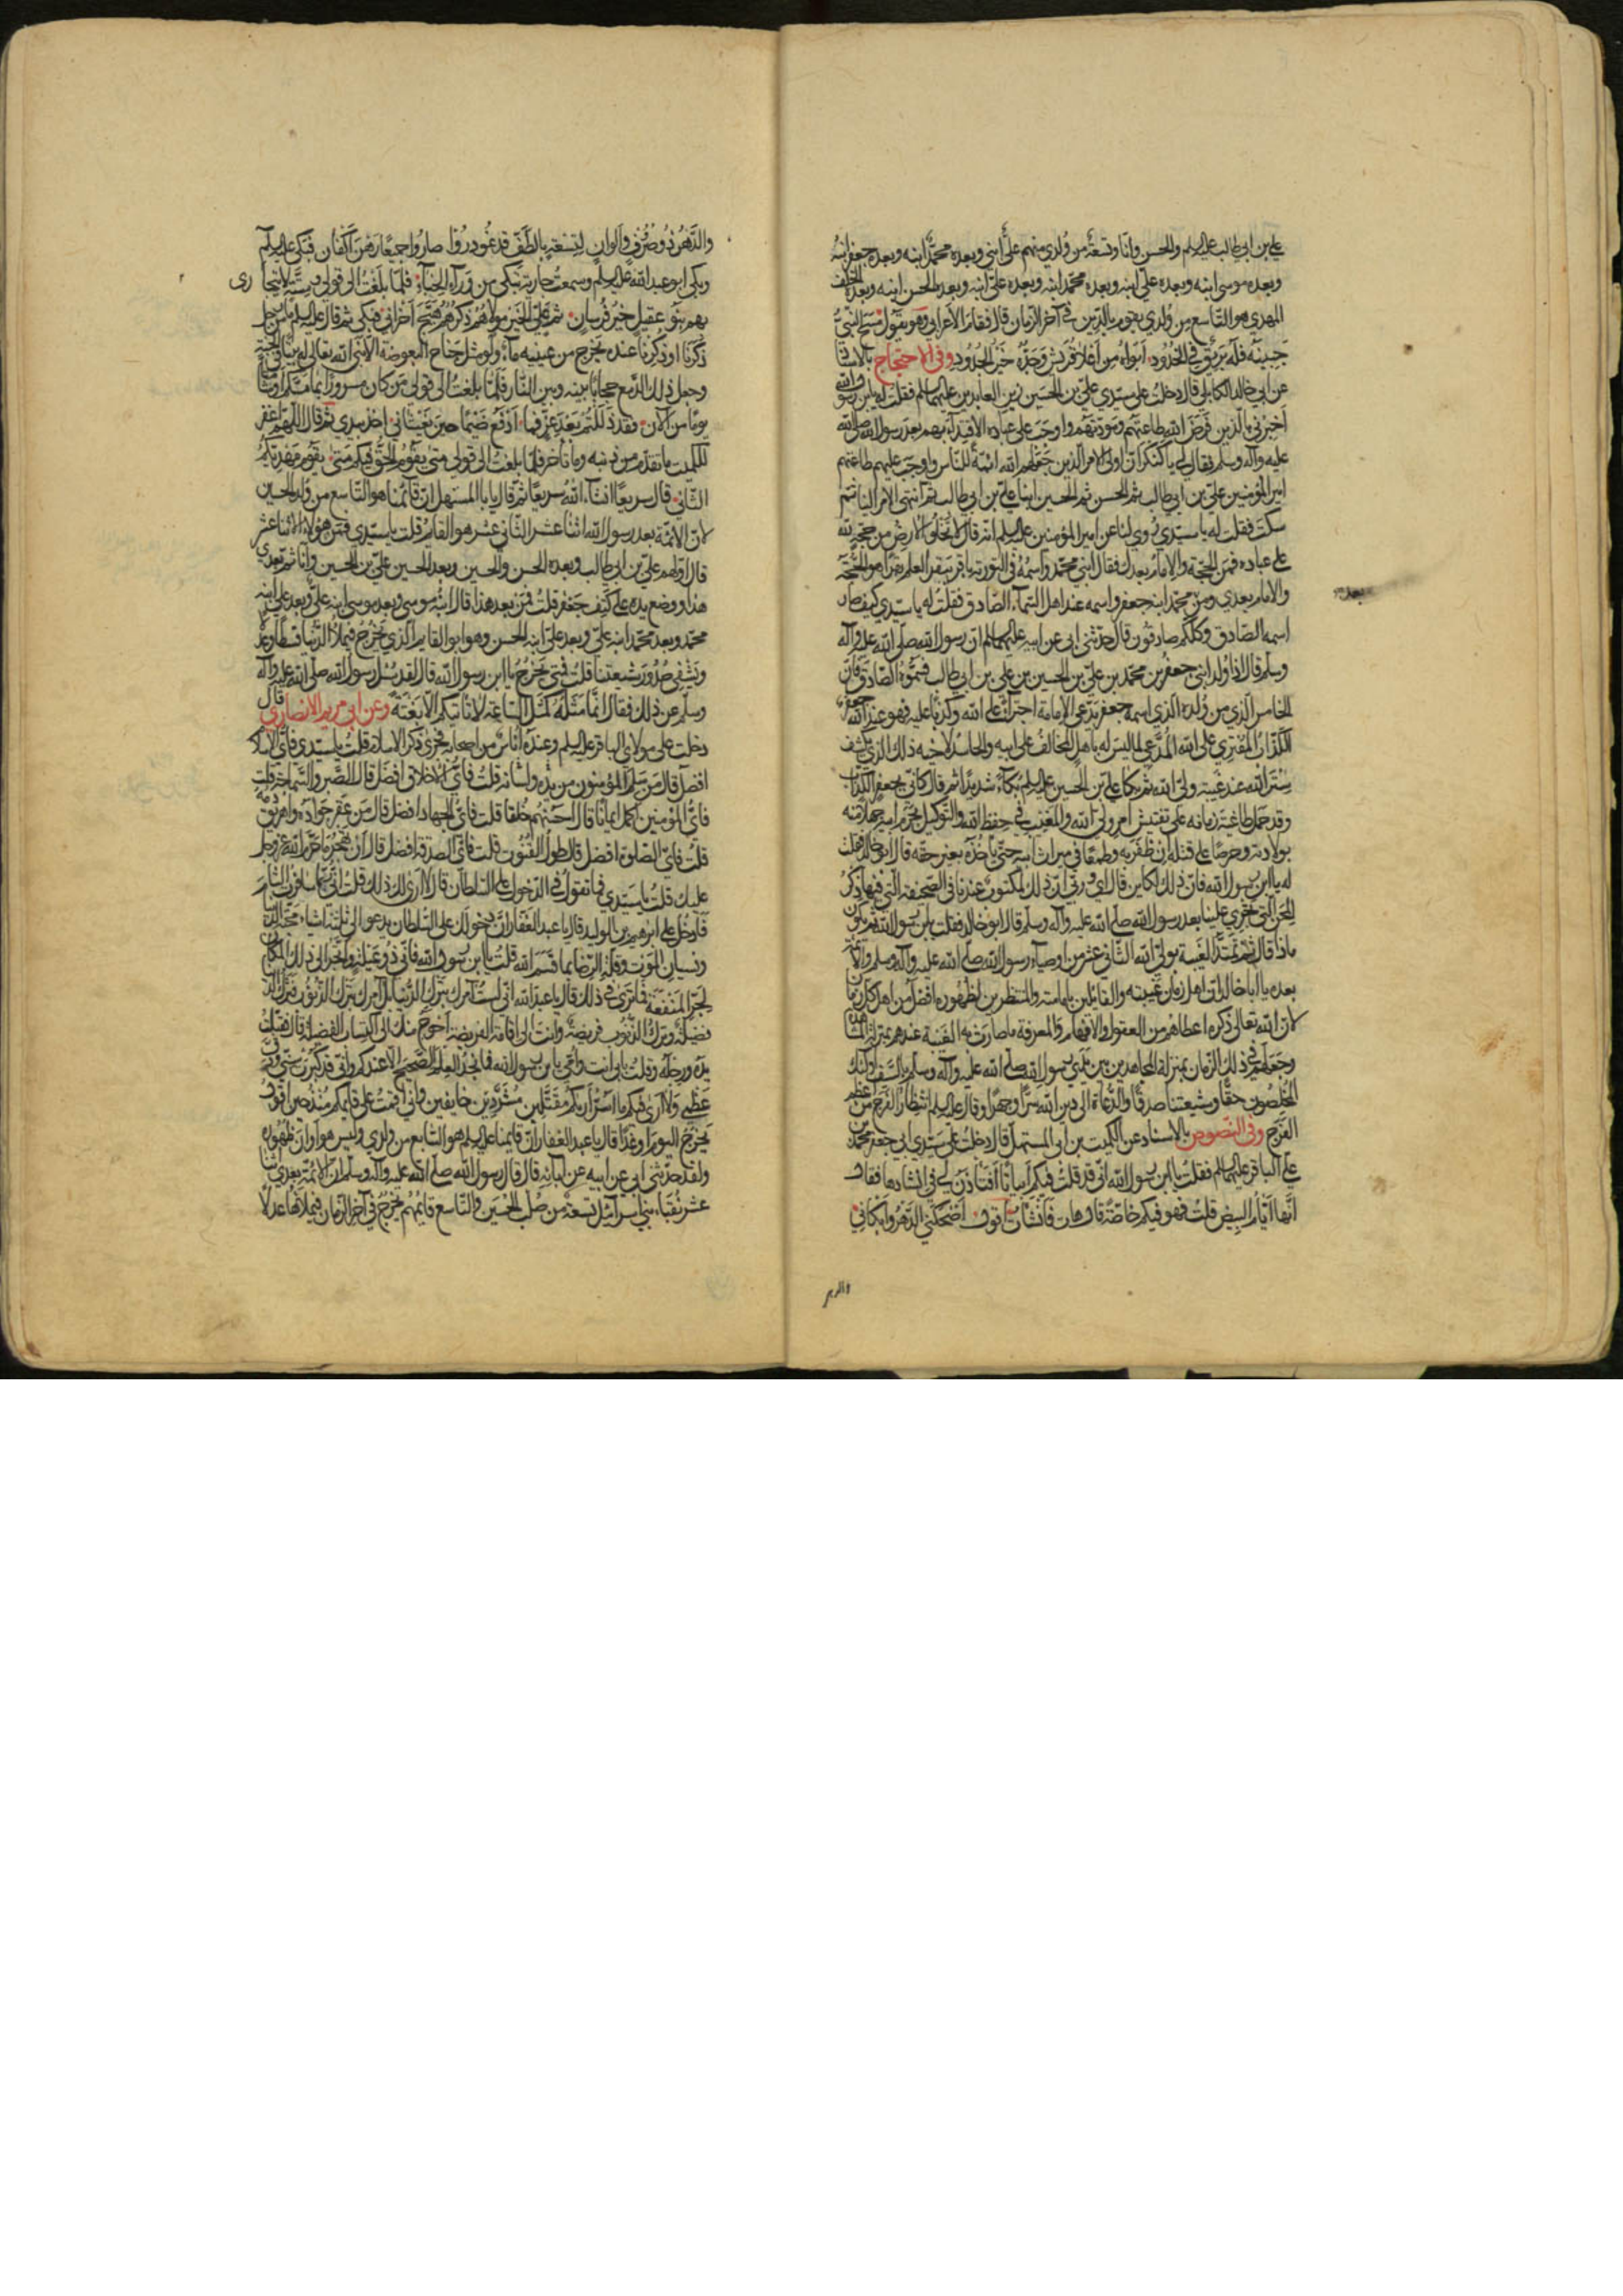 علي بن ابي طالب عليه السلم والحسن وانا وتسعة من ولدي منهم علي ابني وبعده محمد ابنه وبعده جعفر ابنه
وبعده موسى ابنه وبعده علي ابنه وبعده محمد ابنه وبعده علي ابنه وبعده الحسن ابنه وبعده الخلف
المهدي هو التاسع من ولدي يقوم بالدين في آخر الزمان قال فقام الاعرابي وهو يقول مسح النبي
جبينه فله بريق في الخدود ابواه من اعلا قريش وجده خير الجدود وفي الاحتجاج بالاسناد
عن ابي خالد الكابلي قال دخلت على سيدي علي بن الحسين زين العابدين عليهما السلم فقلت له يابن رسول الله
اخبرني بالذين فرض الله طاعتهم ومودتهم واوجب على عباده الاقتداء بهم بعد رسول الله صلى الله
عليه وآله وسلم فقال لي يا كنكر ان اولي الامر الذين جعلهم الله ائمة للناس واوجب عليهم طاعتهم
امير المؤمنين علي بن ابي طالب ثم الحسن ثم الحسين ابنا علي بن ابي طالب ثم انتهى الامر الينا ثم
سكت فقلت له يا سيدي روي لنا عن امير المؤمنين عليه السلم انه قال لا تخلو الارض من حجة لله
على عباده فمن الحجة والامام بعدك فقال ابني محمد واسمه في التورية باقر يبقر العلم بقرا هو الحجة
والامام بعدي ومن محمد ابنه جعفر واسمه عند اهل السماء الصادق فقلت له يا سيدي كيف صار
بعد
اسمه الصادق وكلكم صادقون قال حدثني ابي عن ابيه عليهما السلم ان رسول الله صلى الله عليه وآله
وسلم قال اذا ولد ابني جعفر بن محمد بن علي بن الحسين بن علي بن ابي طالب فسموه الصادق فان
الخامس الذي من ولده الذي اسمه جعفر يدعي الامامة اجتراء على الله وكذبا عليه فهو عند الله جعفر
الكذاب المفتري على الله المدعي لما ليس له باهل المخالف على ابيه والحاسد لاخيه ذلك الذي يكشف
ستر الله عند غيبة ولي الله ثم بكا علي بن الحسين عليه السلم بكاء شديدا ثم قال كاني بجعفر الكذاب
وقد حمل طاغية زمانه على تفتيش امر ولي الله والمغيب في حفظ الله والتوكيل بحرم ابيه جهلا منه
بولادته وحرصا على قتله ان ظفر به وطمعا في ميراث ابيه حتى ياخذه بغير حقه قال ابو خالد فقلت
له يا ابن رسول الله فان ذلك لكاين قال اي وربي ان ذلك لمكتوب عندنا في الصحيفة التي فيها ذكر
المحن التي تجري علينا بعد رسول الله صلى الله عليه وآله وسلم قال ابو خالد فقلت يابن رسول الله ثم يكون
ماذا قال ثم تمتد الغيبة بولي الله الثاني عشر من اوصياء رسول الله صلى الله عليه وآله وسلم والائمة
بعده يا ابا خالد ان اهل زمان غيبته والقائلين بامامته والمنتظرين لظهوره افضل من اهل كل زمان
لان الله تعالى ذكره اعطاهم من العقول والافهام والمعرفة ما صارت به الغيبة عندهم بمنزلة المشاهدة
وجعلهم في ذلك الزمان بمنزلة المجاهدين بين يدي رسول الله صلى الله عليه وآله وسلم بالسيف اولئك
المخلصون حقا وشيعتنا صدقا والدعاة الى دين الله سرا وجهرا وقال عليه السلم انتظار الفرج من اعظم
الفرج وفي النصوص بالاسناد عن الكميت بن ابي المستهل قال دخلت على سيدي ابي جعفر محمد بن
علي الباقر عليهما السلم فقلت يا ابن رسول الله اني قد قلت فيكم ابياتا افتاذن لي في انشادها فقال
انها ايام البيض قلت فهو فيكم خاصة قال هات فانشات اقول اضحكني الدهر وابكاني
والدهر
والدهر ذو صرف والوان لتسعة بالطف قد غودروا صاروا جميعا رهن اكفان فبكى عليه السلم
وبكى ابو عبد الله عليه السلم وسمعت جارية تبكي من وراء الخباء فلما بلغت الى قولي وستة لا يتجا
رى
بهم بنو عقيل خير فرسان ثم علي الخير مولاهم ذكرهم هيج احزاني فبكى ثم قال عليه السلم ما من رجل
ذكرنا او ذكرنا عنده يخرج من عينيه ماء ولو مثل جناح البعوضة الا بنى الله تعالى له بيتا في الجنة
وجعل ذلك الدمع حجابا بينه وبين النار فلما بلغت الى قولي من كان مسرورا بما مسكم او شامتا
يوما من الآن فقد ذللتم بعد عز فما ادفع ضيما حين يغشاني اخذ بيدي ثم قال اللهم اغفر
للكميت ما تقدم من ذنبه وما تأخر فلما بلغت الى قولي متى يقوم الحق فيكم متى يقوم مهديكم
الثاني قال سريعا انشاء الله سريعا ثم قال يا با المستهل ان قائمنا هو التاسع من ولد الحسين
لان الائمة بعد رسول الله اثنا عشر الثاني عشر هو القائم قلت يا سيدي فمن هؤلاء الاثنا عشر
قال اولهم علي بن ابي طالب وبعده الحسن والحسين وبعد الحسين علي بن الحسين وانا ثم بعدي
هذا ووضع يده على كتف جعفر قلت فمن بعد هذا قال ابنه موسى وبعد موسى ابنه علي وبعد علي ابنه
محمد وبعد محمد ابنه علي وبعد علي ابنه الحسن وهو ابو القايم الذي يخرج فيملأ الدنيا قسطا وعدلا
ويشفي صدور شيعتنا قلت فمتى يخرج يا ابن رسول الله قال لقد سئل رسول الله صلى الله عليه وآله
وسلم عن ذلك فقال انما مثله كمثل الساعة لا تاتيكم الا بغتة وعن ابي مريم الانصاري قال
دخلت على مولاي الباقر عليه السلم وعنده اناس من اصحابه فجرى ذكر الاسلام قلت يا سيدي فاي الاسلام
افضل قال من سلم المؤمنون من يده ولسانه قلت فاي الاخلاق افضل قال الصبر والسماحة قلت
فاي المؤمنين اكمل ايمانا قال احسنهم خلقا قلت فاي الجهاد افضل قال من عقر جواده واهريق دمه
قلت فاي الصلوة افضل قال طول القنوت قلت فاي الصدقة افضل قال ان تهجر ما حرم الله عز وجل
عليك قلت يا سيدي فما تقول في الدخول على السلطان قال لا ارى لك ذلك قلت اني ربما سافرت الشام
فادخل على ابرهيم بن الوليد قال يا عبد الغفار ان دخولك على السلطان يدعو الى ثلثة اشياء محبة الدنيا
ونسيان الموت وقلة الرضا بما قسم الله قلت يا ابن رسول الله فاني ذو عيلة واتجر الى ذلك المكان
لجر المنفعة فما ترى في ذلك قال يا عبد الله اني لست آمرك بترك الدنيا بل آمرك بترك الذنوب فترك الدنيا
فضيلة وترك الذنوب فريضة وانت الى اقامة الفريضة احوج منك الى اكتساب الفضيلة قال فقبلت
يده ورجله وقلت بابي انت وامي يا بن رسول الله فما نجد العلم الصحيح الا عندكم واني قد كبرت سني ودق
عظمي ولا ارى فيكم ما اسر اراكم مقتلين مشردين خايفين واني اقمت على قايمكم منذ حين اقول
يخرج اليوم او غدا قال يا عبد الغفار ان قايمنا عليه السلم هو السابع من ولدي وليس هو اوان ظهوره
ولقد حدثني ابي عن ابيه عن آبائه قال قال رسول الله صلى الله عليه وآله وسلم ان الائمة بعدي اثنا
عشر نقباء بني اسرائيل تسعة من صلب الحسين والتاسع قايمهم يخرج في آخر الزمان فيملأها عدلا